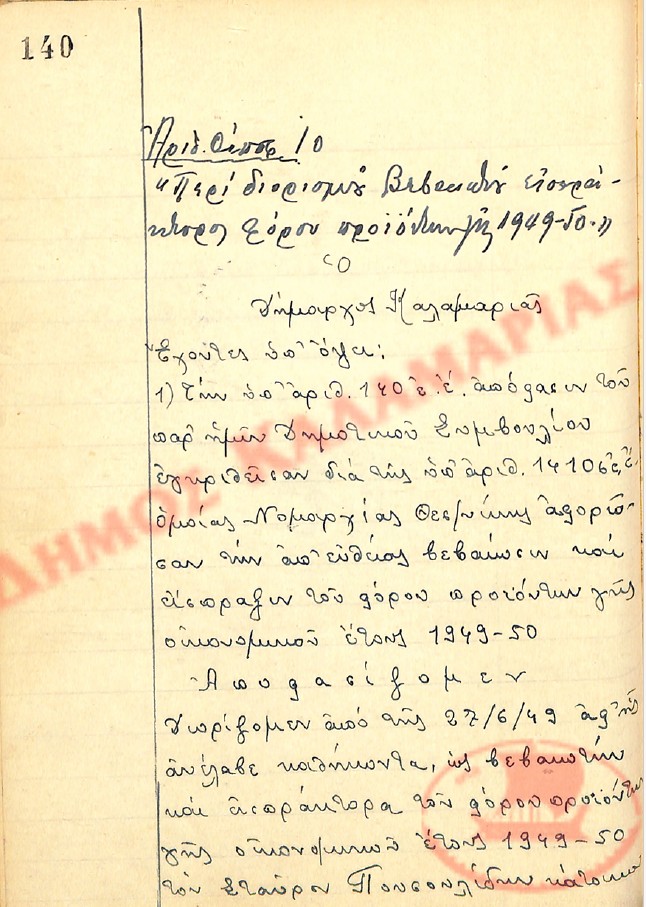 140
Ἀριθ. Ἀποφ. 10
"Περί διορισμοῦ Βεβαιωτοῦ εἰσπράκ-
τορος φόρου προϊόντων γῆς 1949-50."
Ὁ
Δήμαρχος Καλαμαριᾶς
Ἔχοντες ὑπ' ὄψει:
1) Τήν ὑπ' ἀριθ. 140 ἐ.ἔ. ἀπόφασιν τοῦ
παρ' ἡμῖν Δημοτικοῦ Συμβουλίου
ἐγκριθεῖσαν διά τῆς ὑπ' ἀριθ. 14106 ἐ.ἔ.
ὁμοίας Νομαρχίας Θεσ/νίκης ἀφορῶ-
σαν τήν ἀπ' εὐθείας βεβαίωσιν καί
εἴσπραξιν τοῦ φόρου προϊόντων γῆς
οἰκονομικοῦ ἔτους 1949-50
Ἀποφασίζομεν
Διορίζομεν ἀπό τῆς 27/6/49 ἀφ' ἧς
ἀνέλαβε καθήκοντα, ὡς βεβαιωτήν
καί εἰσπράκτορα τοῦ φόρου προϊόντων
γῆς οἰκονομικοῦ ἔτους 1949-50
τόν Σταῦρον Πουσουλίδην κάτοικον
ΔΗΜΟΣ ΚΑΛΑΜΑΡΙΑΣ